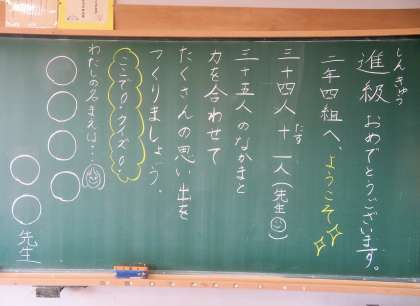 しんきゅう
進級おめでとうございます。
二年四組へ、ようこそ
三十四人+一人(先生)
たす
三十五人のなかまと
力を合わせて
たくさんの思い出を
つくりましょう。
ここで!クイズ!
わたしの名まえは…
先生